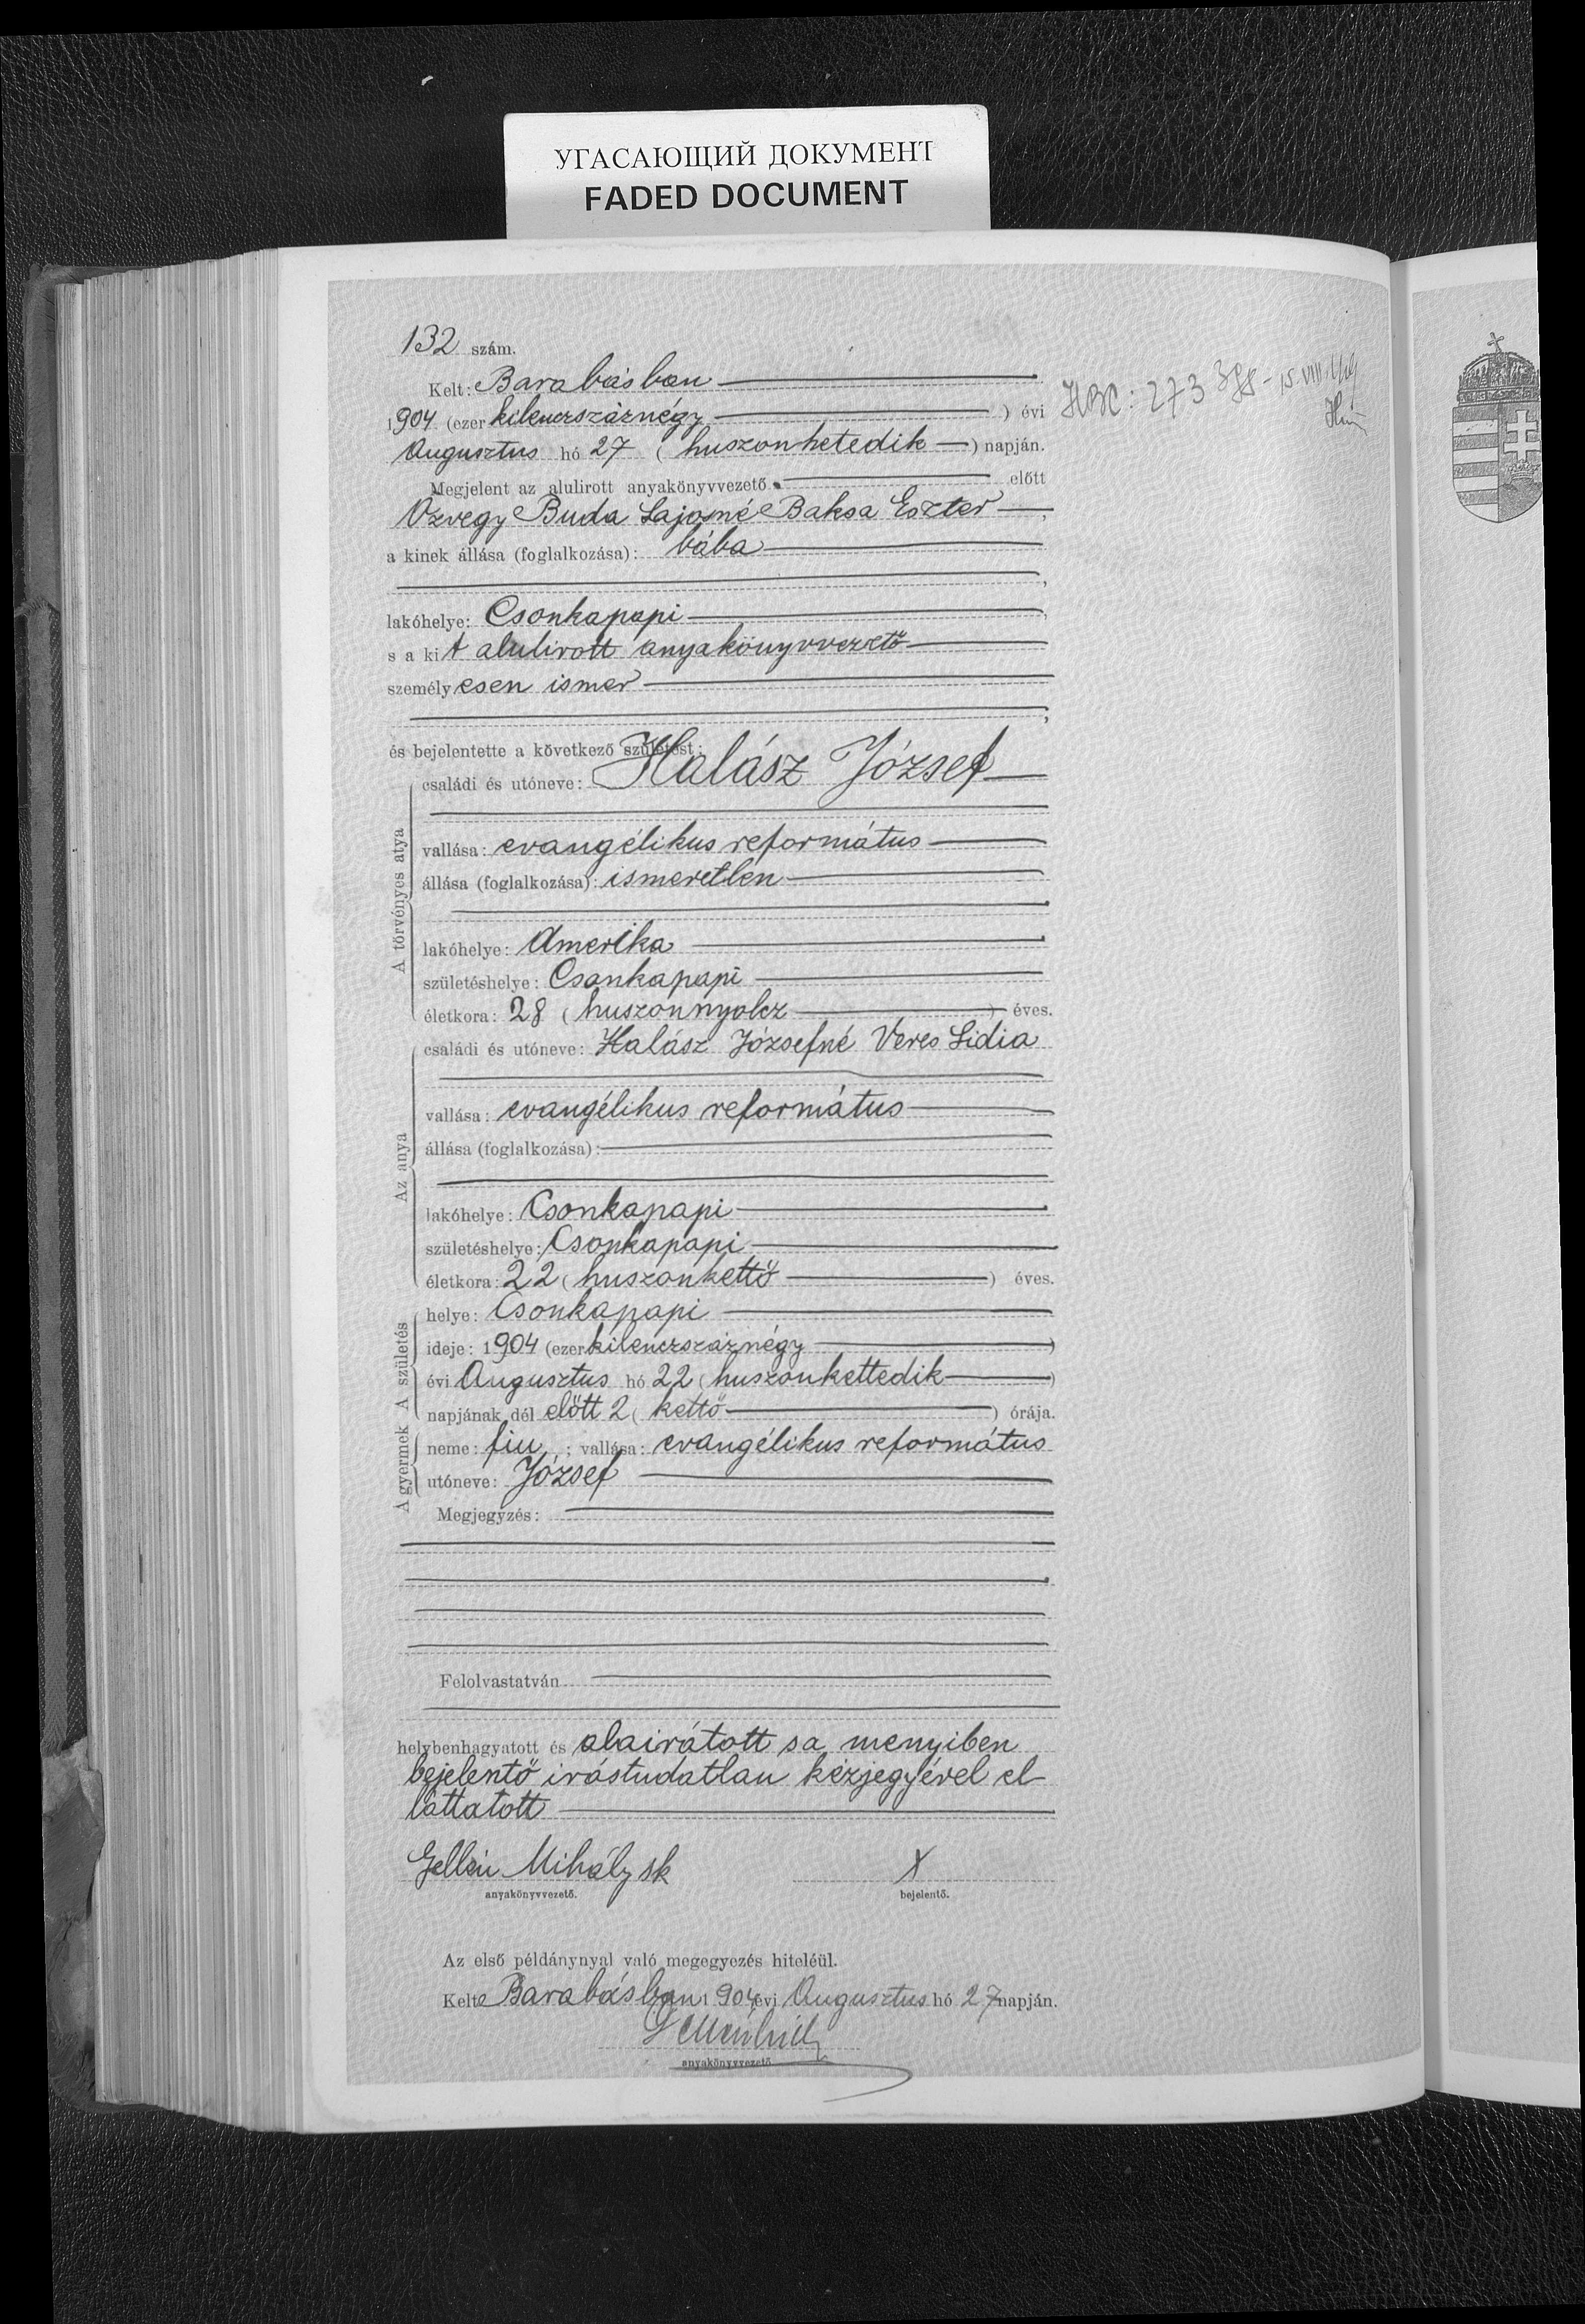 УГАСАЮЩИЙ ДОКУМЕНТ
FADED DOCUMENT
132 szám.
Kelt: Barabásban
1904 (ezer kilencszáznégy) évi
Augusztus hó 27 (huszonhetedik) napján.
Megjelent az alulirott anyakönyvvezető előtt
Özvegy Buda Lajosné Baksa Eszter,
a kinek állása (foglalkozása): bába
,
lakóhelye: Csonkapapi,
s a kit alulirott anyakönyvvezető
személyesen ismer
,
és bejelentette a következő születést:
A törvényes atya
családi és utóneve: Halász József
vallása: evangélikus református
állása (foglalkozása): ismeretlen
lakóhelye: Amerika
születéshelye: Csonkapapi
életkora: 28 (huszonnyolcz) éves.
Az anya
családi és utóneve: Halász Józsefné Veres Lidia
vallása: evangélikus református
állása (foglalkozása):
lakóhelye: Csonkapapi
születéshelye: Csonkapapi
életkora: 22 (huszonkettő) éves.
A születés
helye: Csonkapapi
ideje: 1904 (ezer kilencszáznégy)
évi Augusztus hó 22 (huszonkettedik)
napjának dél előtt 2 (kettő) órája.
A gyermek
neme: fiu; vallása: evangélikus református
utóneve: József
Megjegyzés:
Felolvastatván
helybenhagyatott és alairátott s a menyiben
bejelentő irástudatlan kézjegyével el-
láttatott
Gellén Mihály sk X
anyakönyvvezető. bejelentő.
Az első példánynyal való megegyezés hiteléül.
Kelt Barabásban 1904 évi Augusztus hó 27 napján.
anyakönyvvezető